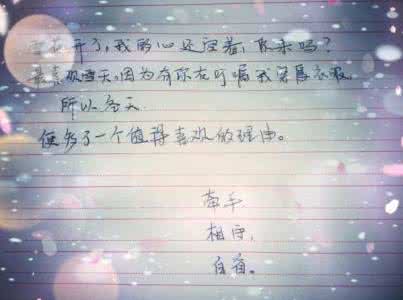 雪花开了，我的心还空着，你来吗？
最喜欢雪天。因为有你在叮嘱我穿厚衣服
所以冬天
便多了一个值得喜欢的理由。
牵手
相守，
白首。